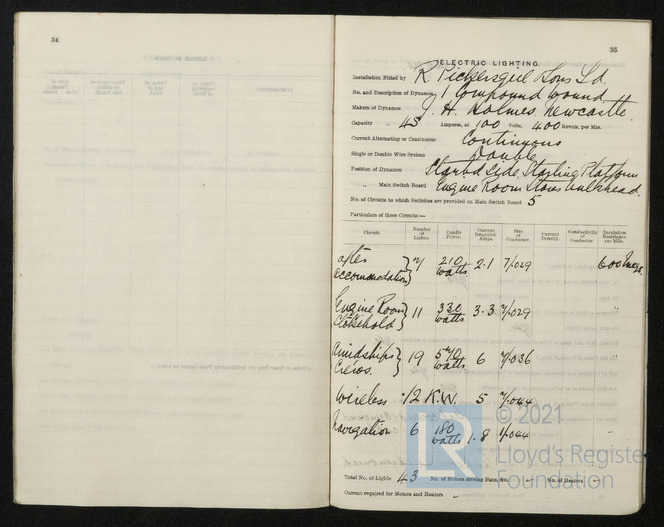 34
35
ELECTRIC LIGHTING.
Installation Fitted by R Pickersgill Sons Ld.
No. and Description of Dynamos 1 Compound Wound
Makers of Dynamos J. H. Holmes, Newcastle.
Capacity 45 Amperes, at 100 Volts, 400 Revols. per Min.
Current Alternating or Continuous Continuous
Single or Double Wire System Double
Position of Dynamos Starbd Side, Starting Platform
„ Main Switch Board Engine Room bulkhead.
No. of Circuits to which Switches are provided on Main Switch Board 5
Particulars of these Circuits:—
Circuit. Number of Lights. Candle Power. Current Required Amps. Size of Conductor. Current Density. Conductivity of Conductor. Insulation Resistance per Mile.
After accommodation} 7 210 watts 2.1 7/.029 600 megs.
Engine Room & Stokehold} 11 330 watts 3.3 7/.029 "
Amidships & Crews. } 19 570 watts 6 7/.036 "
Wireless 1/2 K.W. 5 7/.044
Navigation 6 180 watts 1.8 7/.044 "
Total No. of Lights 43 No. of Motors driving Fans, &c. — No. of Heaters —
Current required for Motors and Heaters
LR
© 2021
Lloyd's Register
Foundation